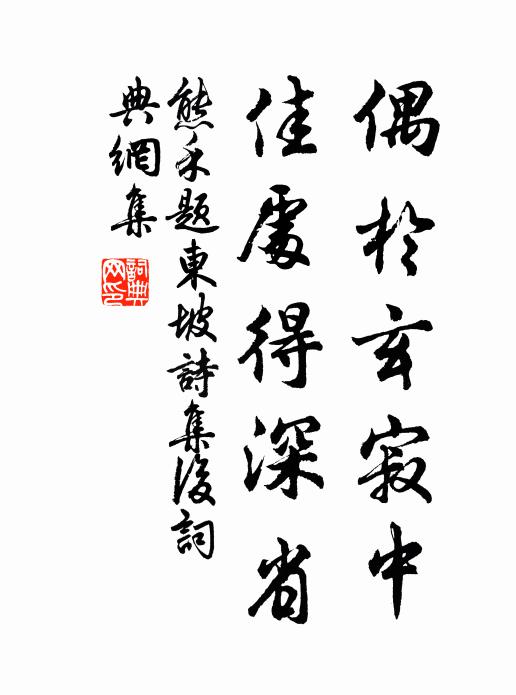 偶於玄寂中
佳處得深省
熊禾題東坡詩集後詞
典網集
詞典
网印